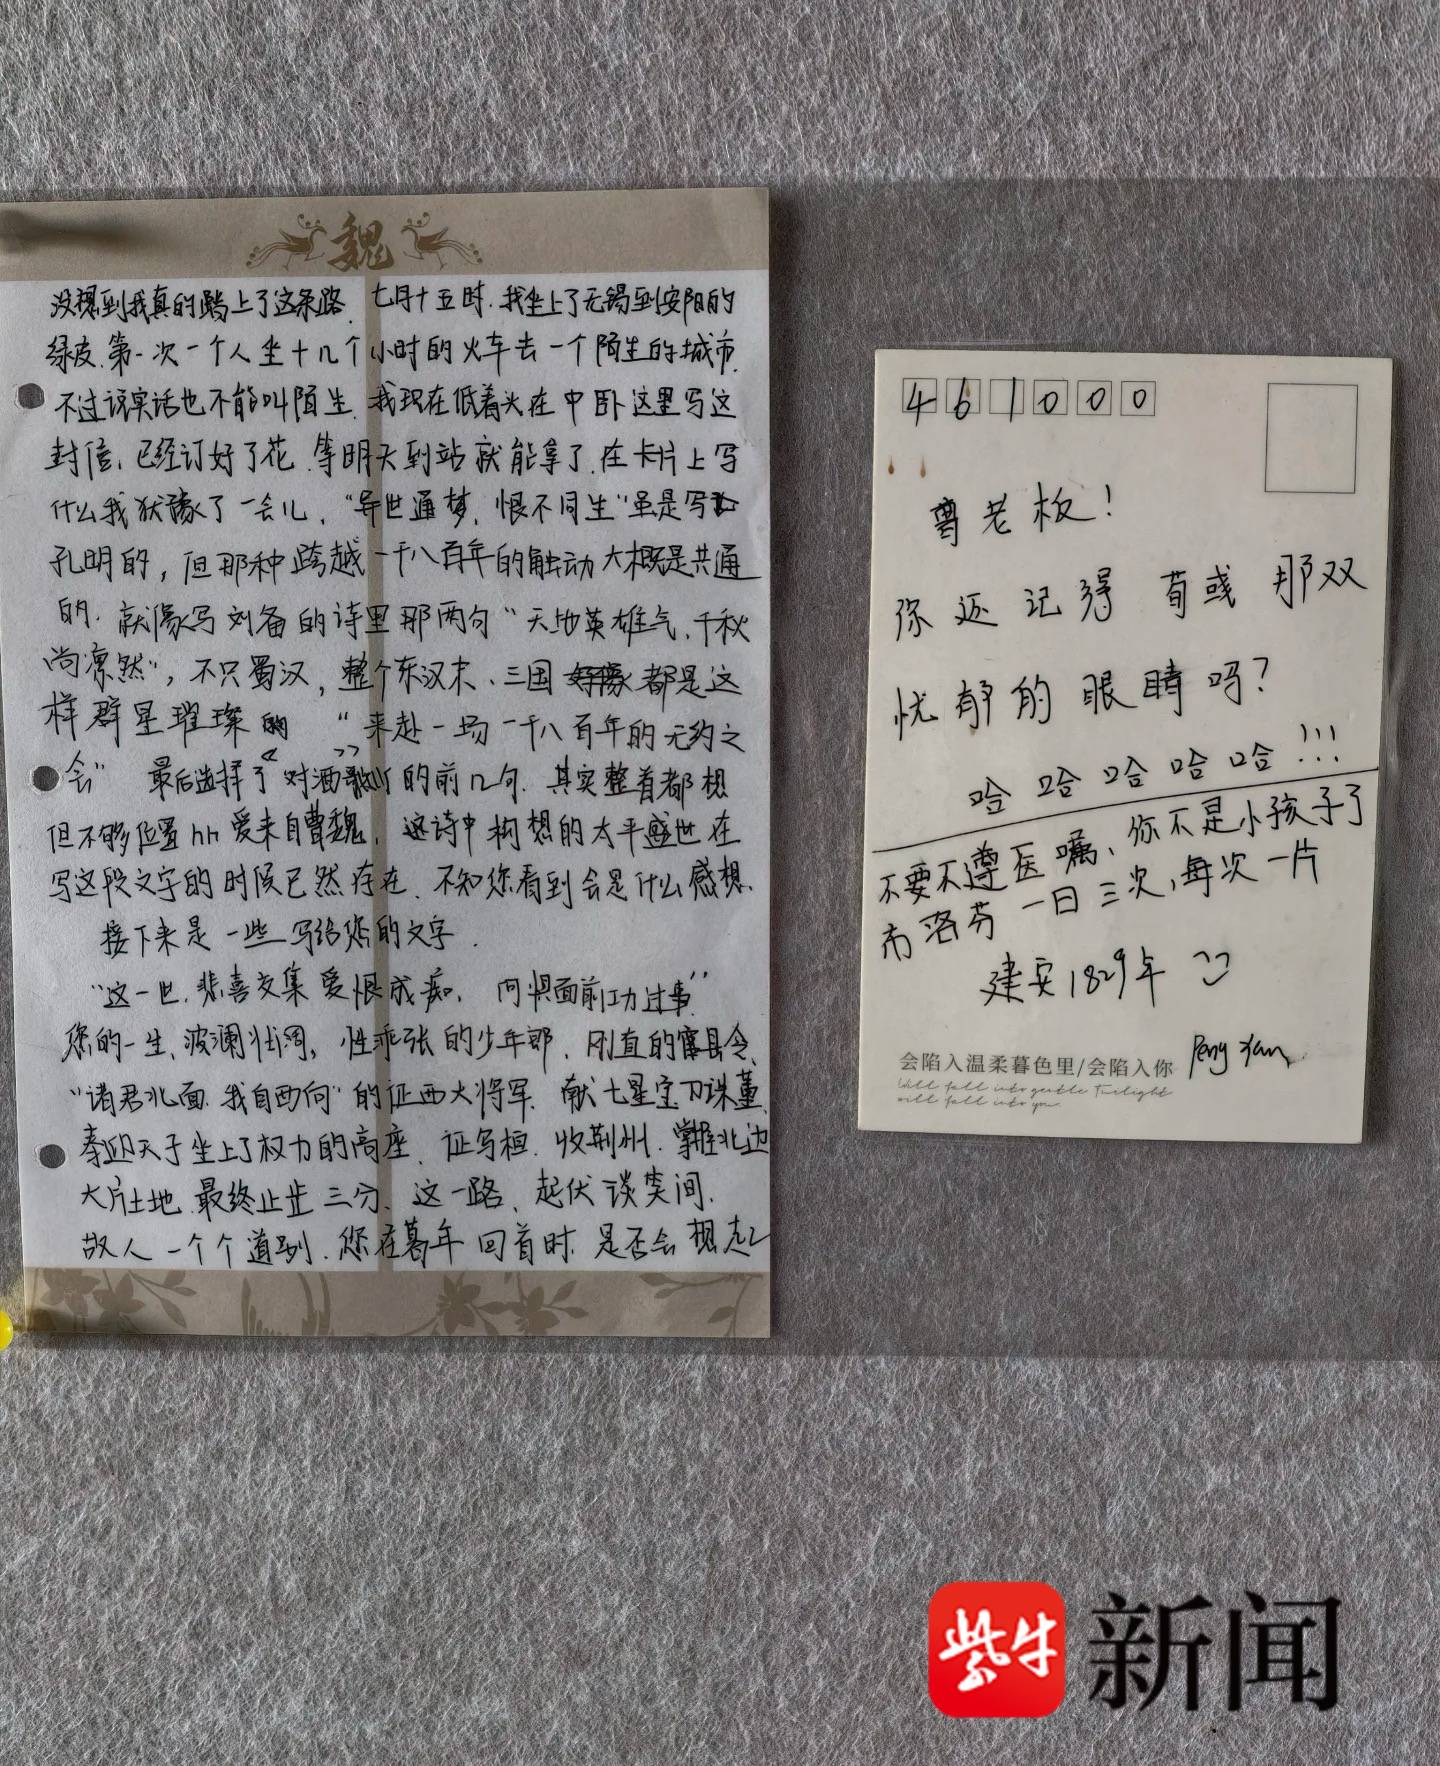 魏
没想到我真的踏上了这条路. 七月十五时. 我坐上了无锡到安阳的
绿皮. 第一次一个人坐十几个小时的火车去一个陌生的城市.
不过说实话也不能叫陌生. 我现在低着头在中卧这里写这
封信, 已经订好了花. 等明天到站就能拿了. 在卡片上写
什么我犹豫了一会儿, “异世通梦, 恨不同生”虽是写
孔明的, 但那种跨越一千八百年的触动大概是共通
的. 就像写刘备的诗里那两句“天地英雄气, 千秋
尚凛然”, 不只蜀汉, 整个东汉末、三国都是这
样群星璀璨的 “来赴一场一千八百年的无约之
会” 最后选择了《对酒歌》的前几句. 其实整首都想
但不够位置hh 爱来自曹魏. 这诗中构想的太平盛世在
写这段文字的时候已然存在. 不知您看到会是什么感想.
接下来是一些写给您的文字.
“这一世, 悲喜交集 爱恨成痴, 何惧面前功过事”
您的一生, 波澜壮阔, 性乖张的少年郎, 刚直的雷县令、
“诸君北面. 我自西向”的征西大将军. 献七星宝刀诛董、
奉迎天子坐上了权力的高座、征乌桓. 收荆州. 掌握北边
大片土地. 最终止步三分、这一路、起伏谈笑间.
故人一个个道别. 您在暮年回首时. 是否会想起
461000
曹老板!
你还记得荀彧那双
忧郁的眼睛吗?
哈哈哈哈哈!!!
不要不遵医嘱, 你不是小孩子了
布洛芬一日三次, 每次一片
建安1829年
Peng Yan
会陷入温柔暮色里/会陷入你
Will fall into gentle Twilight
will fall into you
紫牛新闻